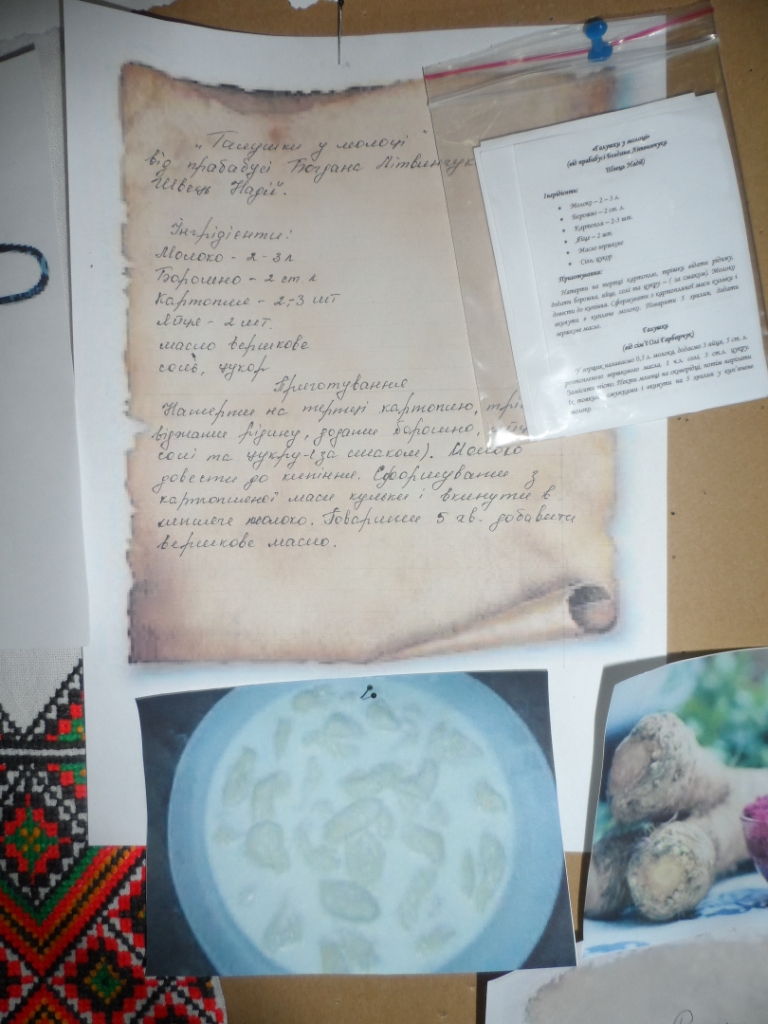 „Галушки у молоці"
від прабабусі Богдана Літвинчук
Швець Надії".
Інгрідієнти:
Молоко - 2-3 л
Борошно - 2 ст л
Картопля - 2-3 шт
Яйце - 2 шт.
масло вершкове
соль, цукор
Приготування
Натерти на тертці картоплю,
віджати рідину, додати борошно,
солі та цукру-(за смаком). Молоко
довести до кипіння. Сформувати з
картопляної маси кульки і вкинути в
кипляче молоко. Поварити 5 хв. добавити
вершкове масло.
«Галушки у молоці»
(від прабабусі Богдана Літвинчука
Швець Надії)
Інгрідієнти:
• Молоко – 2 – 3 л.
• Борошно – 2 ст. л.
• Картопля – 2-3 шт.
• Яйце – 2 шт.
• Масло вершкове
• Сіль, цукор
Приготування:
Натерти на тертці картоплю, трішки віджати рідину,
додати борошно, яйце, солі та цукру – ( за смаком). Молоко
довести до кипіння. Сформувати з картопляної маси кульки і
вкинути в кипляче молоко. Поварити 5 хвилин, додати
вершкове масло.
Галушки
(від сім'ї Олі Гарбарчук)
У миску 0,5 л. молока, додаємо 3 яйця, 5 ст. л.
розтопленого вершкового масла, 1 ч.л. солі, 3 ст.л. цукру.
Замісити тісто. Пекти млинці на сковорідці, потім нарізати
їх, тонкими і вкинути на 5 хвилин у кип'яче
молоко.